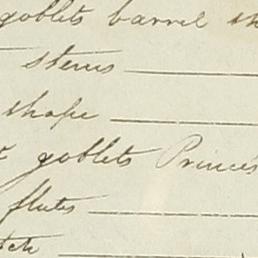 goblets barrel sh
stems
shape
goblets Princes
flutes